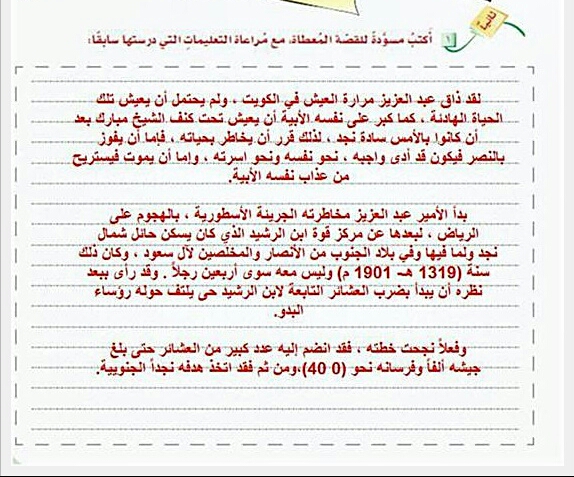 ثانياً
١ أكتبُ مسوَّدةً للقصّة المُعطاة، مع مُراعاة التعليمات التي درستها سابقًا:
لقد ذاق عبد العزيز مرارة العيش في الكويت ، ولم يحتمل أن يعيش تلك
الحياة الهادئة ، كما كبر على نفسه الأبية أن يعيش تحت كنف الشيخ مبارك بعد
أن كانوا بالأمس سادة نجد ، لذلك قرر أن يخاطر بحياته ، فإما أن يفوز
بالنصر فيكون قد أدى واجبه ، نحو نفسه ونحو اسرته ، وإما أن يموت فيستريح
من عذاب نفسه الأبية.
بدأ الأمير عبد العزيز مخاطرته الجريئة الأسطورية ، بالهجوم على
الرياض ، لبعدها عن مركز قوة ابن الرشيد الذي كان يسكن حائل شمال
نجد ولما فيها وفي بلاد الجنوب من الأنصار والمخلصين لآل سعود ، وكان ذلك
سنة (1319 هـ- 1901 م) وليس معه سوى أربعين رجلاً . وقد رأى ببعد
نظره أن يبدأ بضرب العشائر التابعة لابن الرشيد حى يلتف حوله رؤساء
البدو.
وفعلاً نجحت خطته ، فقد انضم إليه عدد كبير من العشائر حتى بلغ
جيشه ألفاً وفرسانه نحو (0 40)،ومن ثم فقد اتخذ هدفه نجداً الجنوبية.